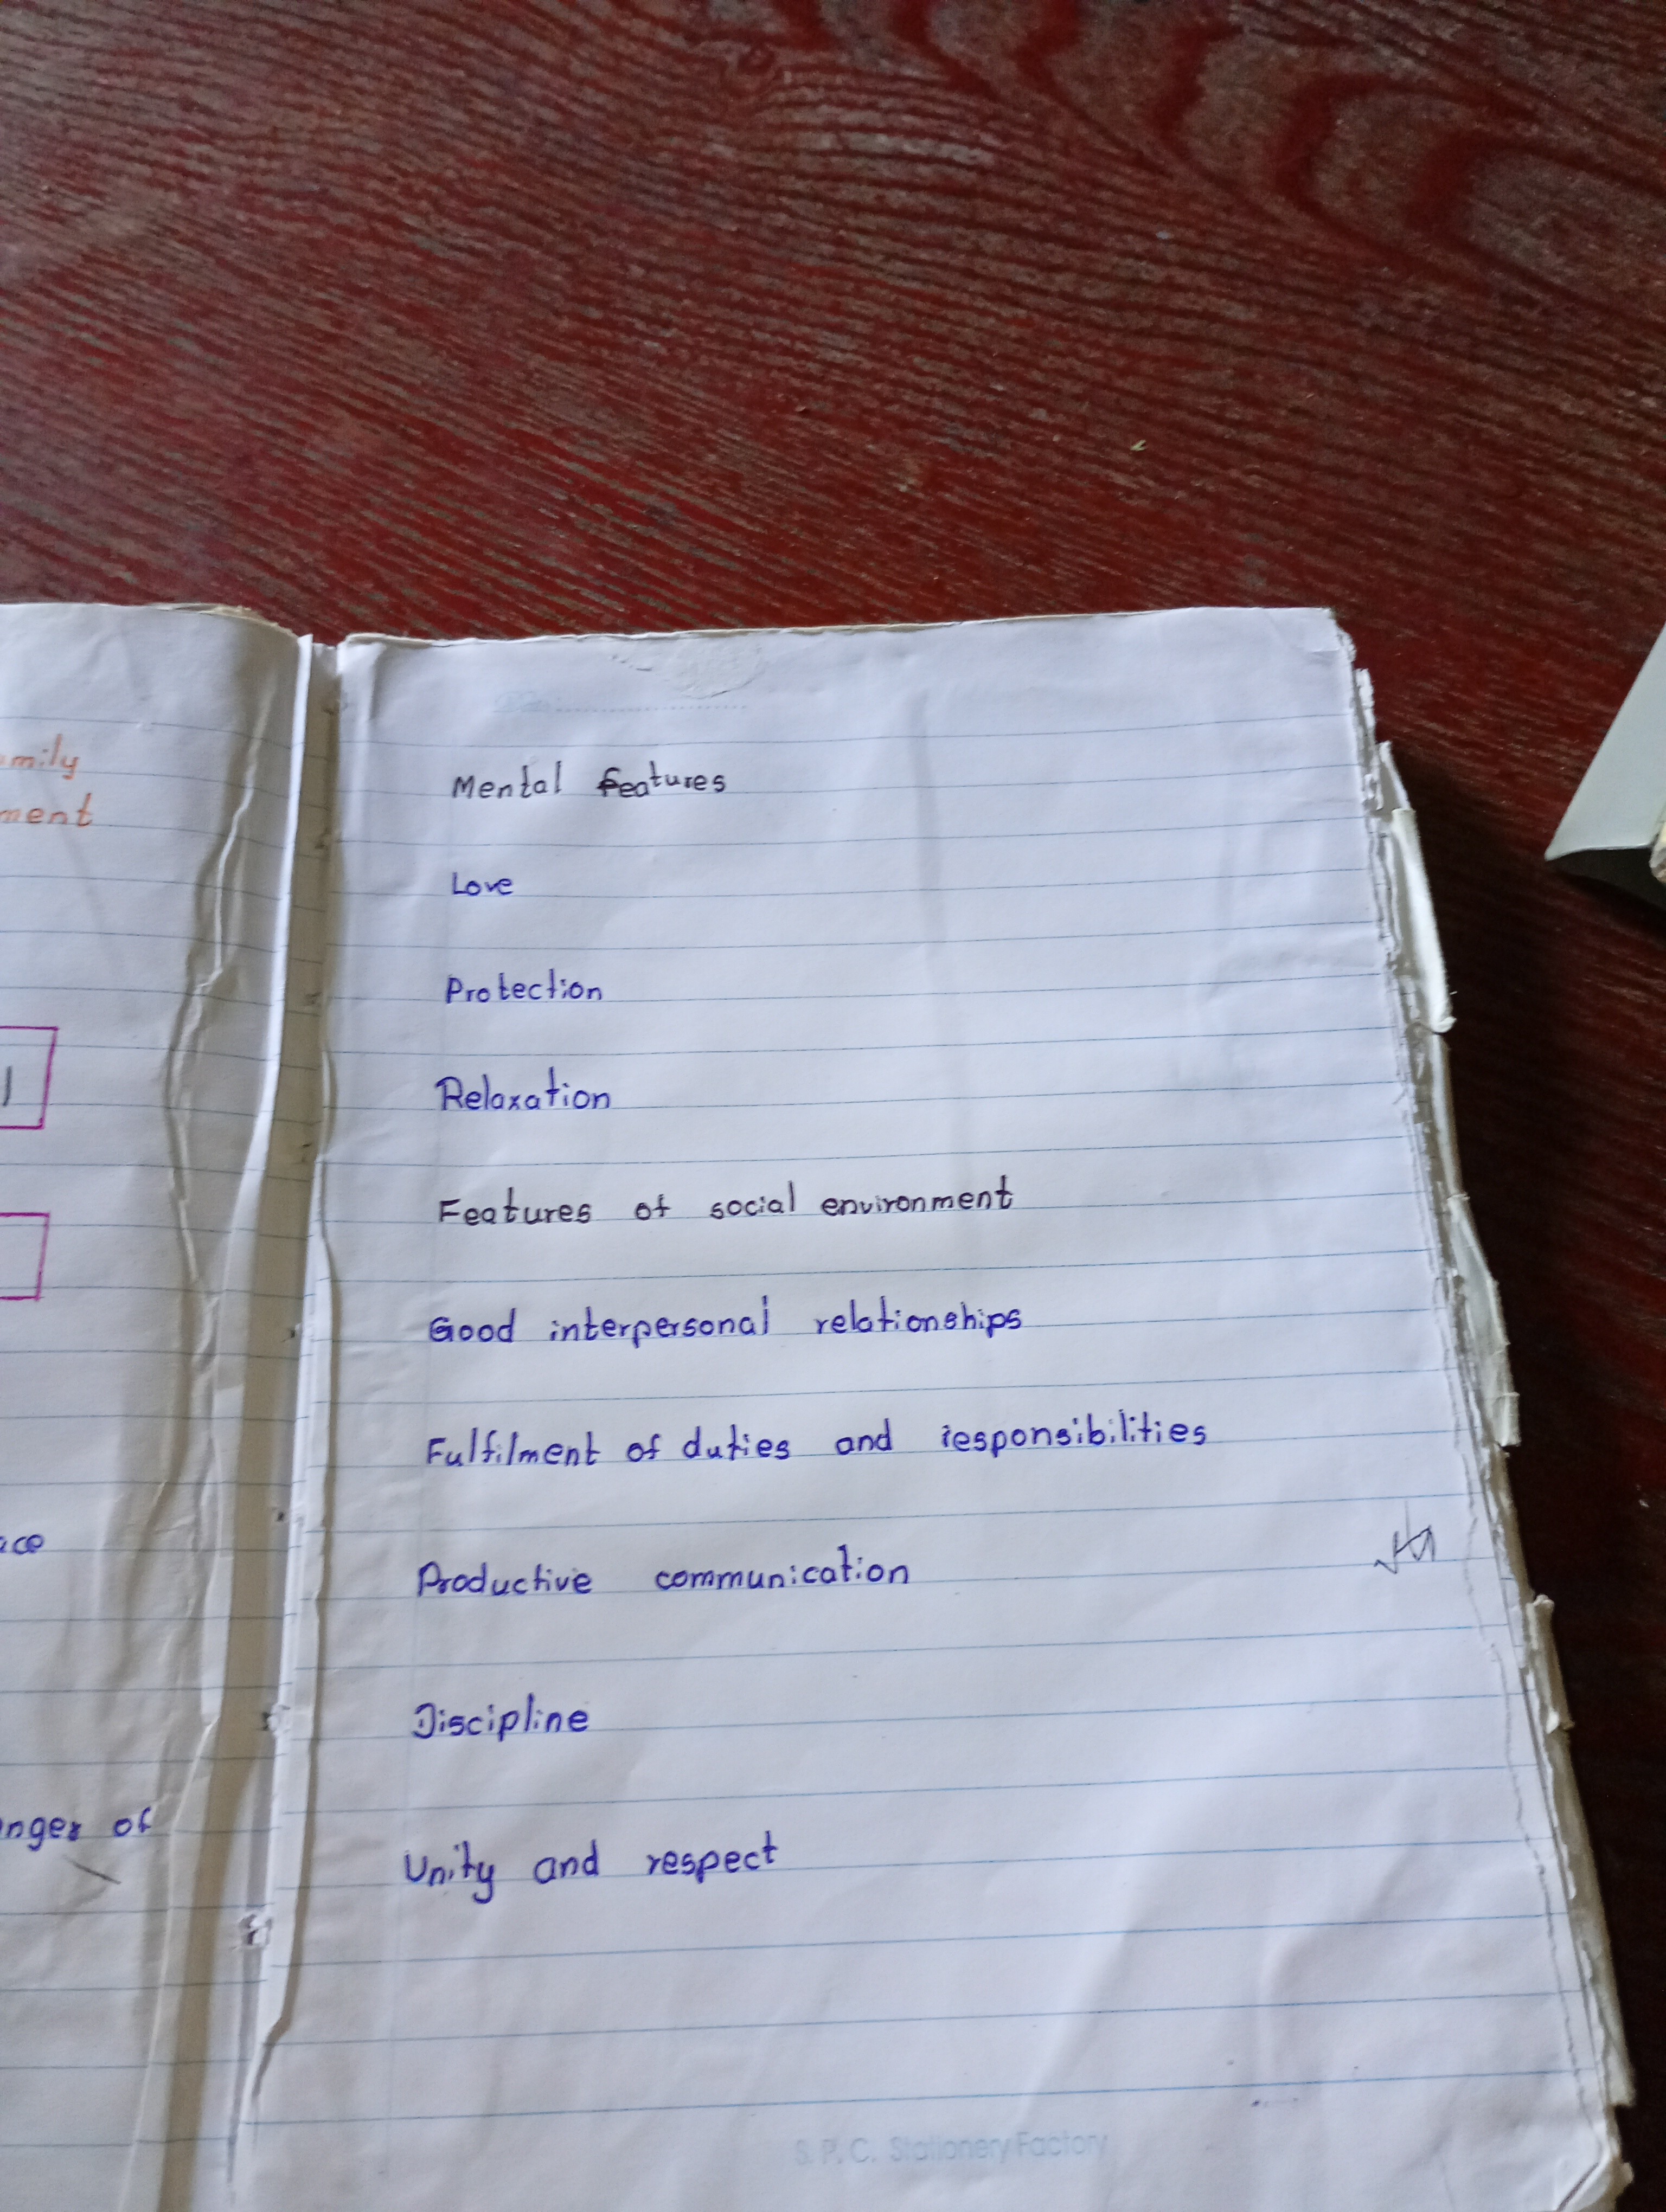 mily
ment
ace
nger of
Mental features
Love
Protection
Relaxation
Features of social environment
Good interpersonal relationships
Fulfilment of duties and responsibilities
Productive communication
Discipline
Unity and respect
S. P. C. Stationery Factory